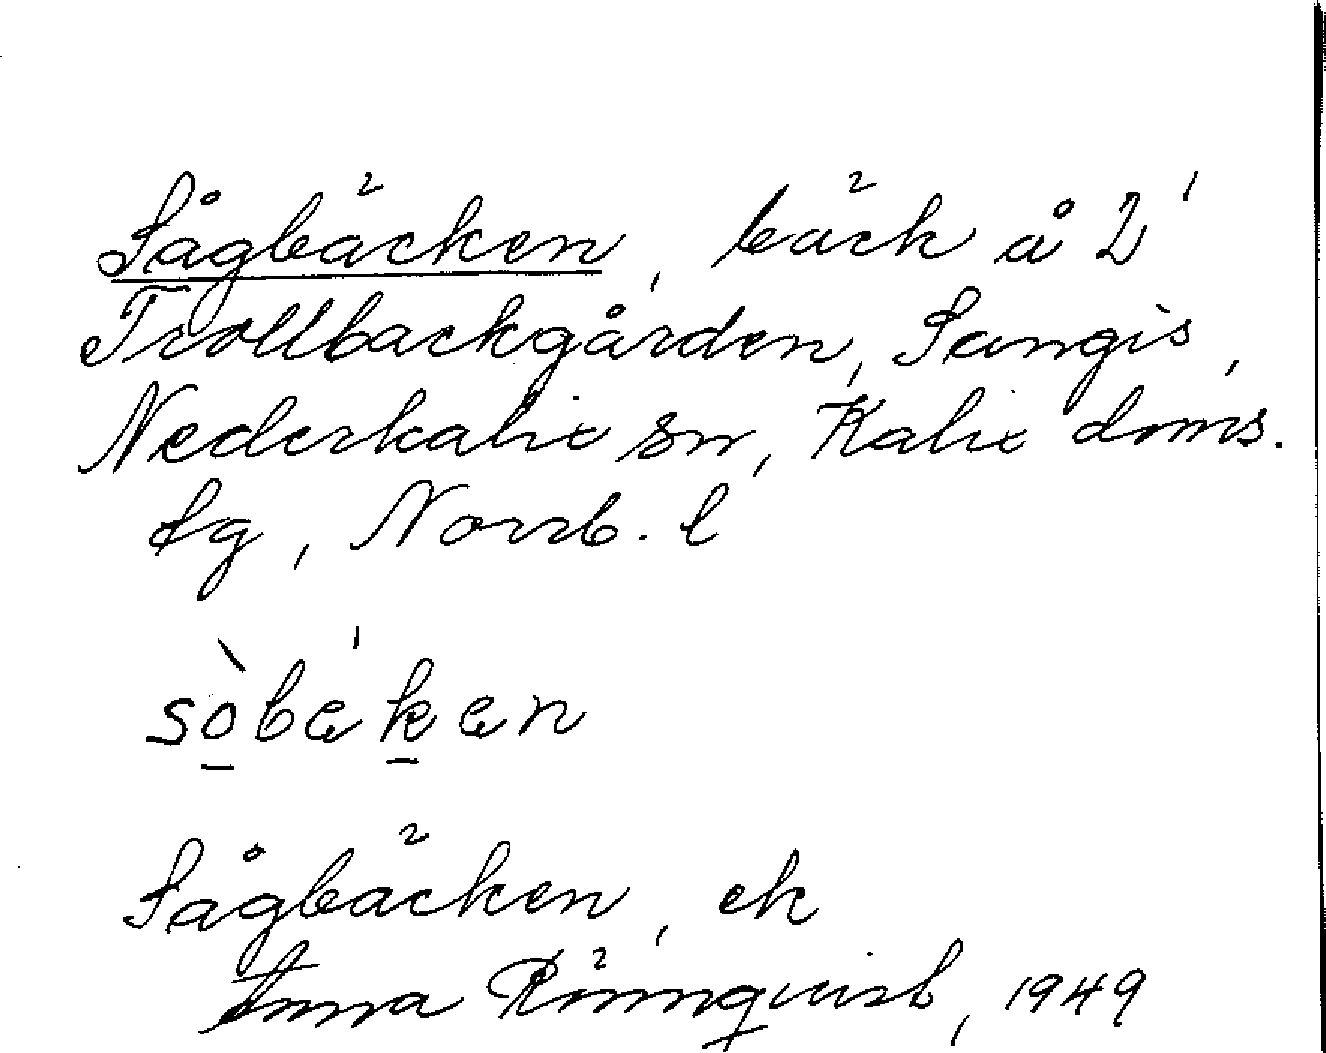 Sågbäcken, bäck å L'
Trollbackgården, Sangis,
Nederkalix sn, Kalix doms.
sg, Norrb. l
sòbækæn
Sågbäcken, ek
Anna Rönnqvist, 1949